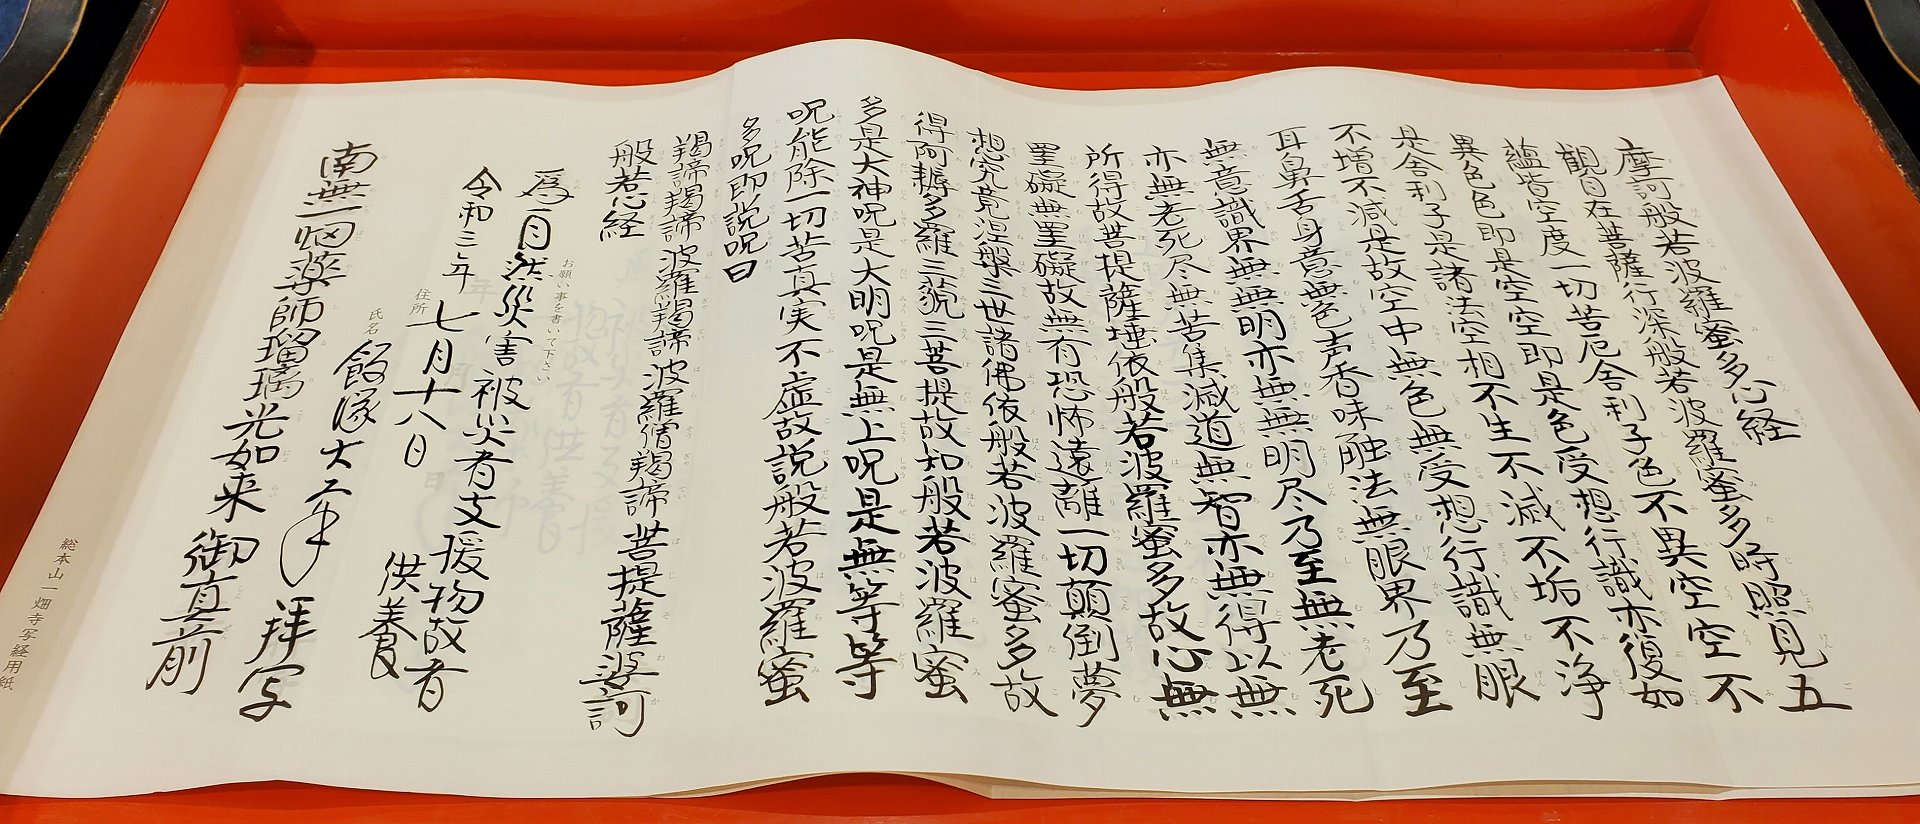 摩訶般若波羅蜜多心経
観自在菩薩行深般若波羅蜜多時照見五
蘊皆空度一切苦厄舎利子色不異空空不
異色色即是空空即是色受想行識亦復如
是舎利子是諸法空相不生不滅不垢不浄
不増不減是故空中無色無受想行識無眼
耳鼻舌身意無色声香味触法無眼界乃至
無意識界無無明亦無無明尽乃至無老死
亦無老死尽無苦集滅道無智亦無得以無
所得故菩提薩埵依般若波羅蜜多故心無
罣礙無罣礙故無有恐怖遠離一切顛倒夢
想究竟涅槃三世諸佛依般若波羅蜜多故
得阿耨多羅三藐三菩提故知般若波羅蜜
多是大神呪是大明呪是無上呪是無等等
呪能除一切苦真実不虚故説般若波羅蜜
多呪即説呪曰
羯諦羯諦波羅羯諦波羅僧羯諦菩提薩婆訶
般若心経
お願い事を書いて下さい
為一自然災害被災者支援物故者
供養
令和三年七月十八日
住所
氏名
飯塚大幸 拝写
南無一畑薬師瑠璃光如来 御真前
総本山一畑寺写経用紙